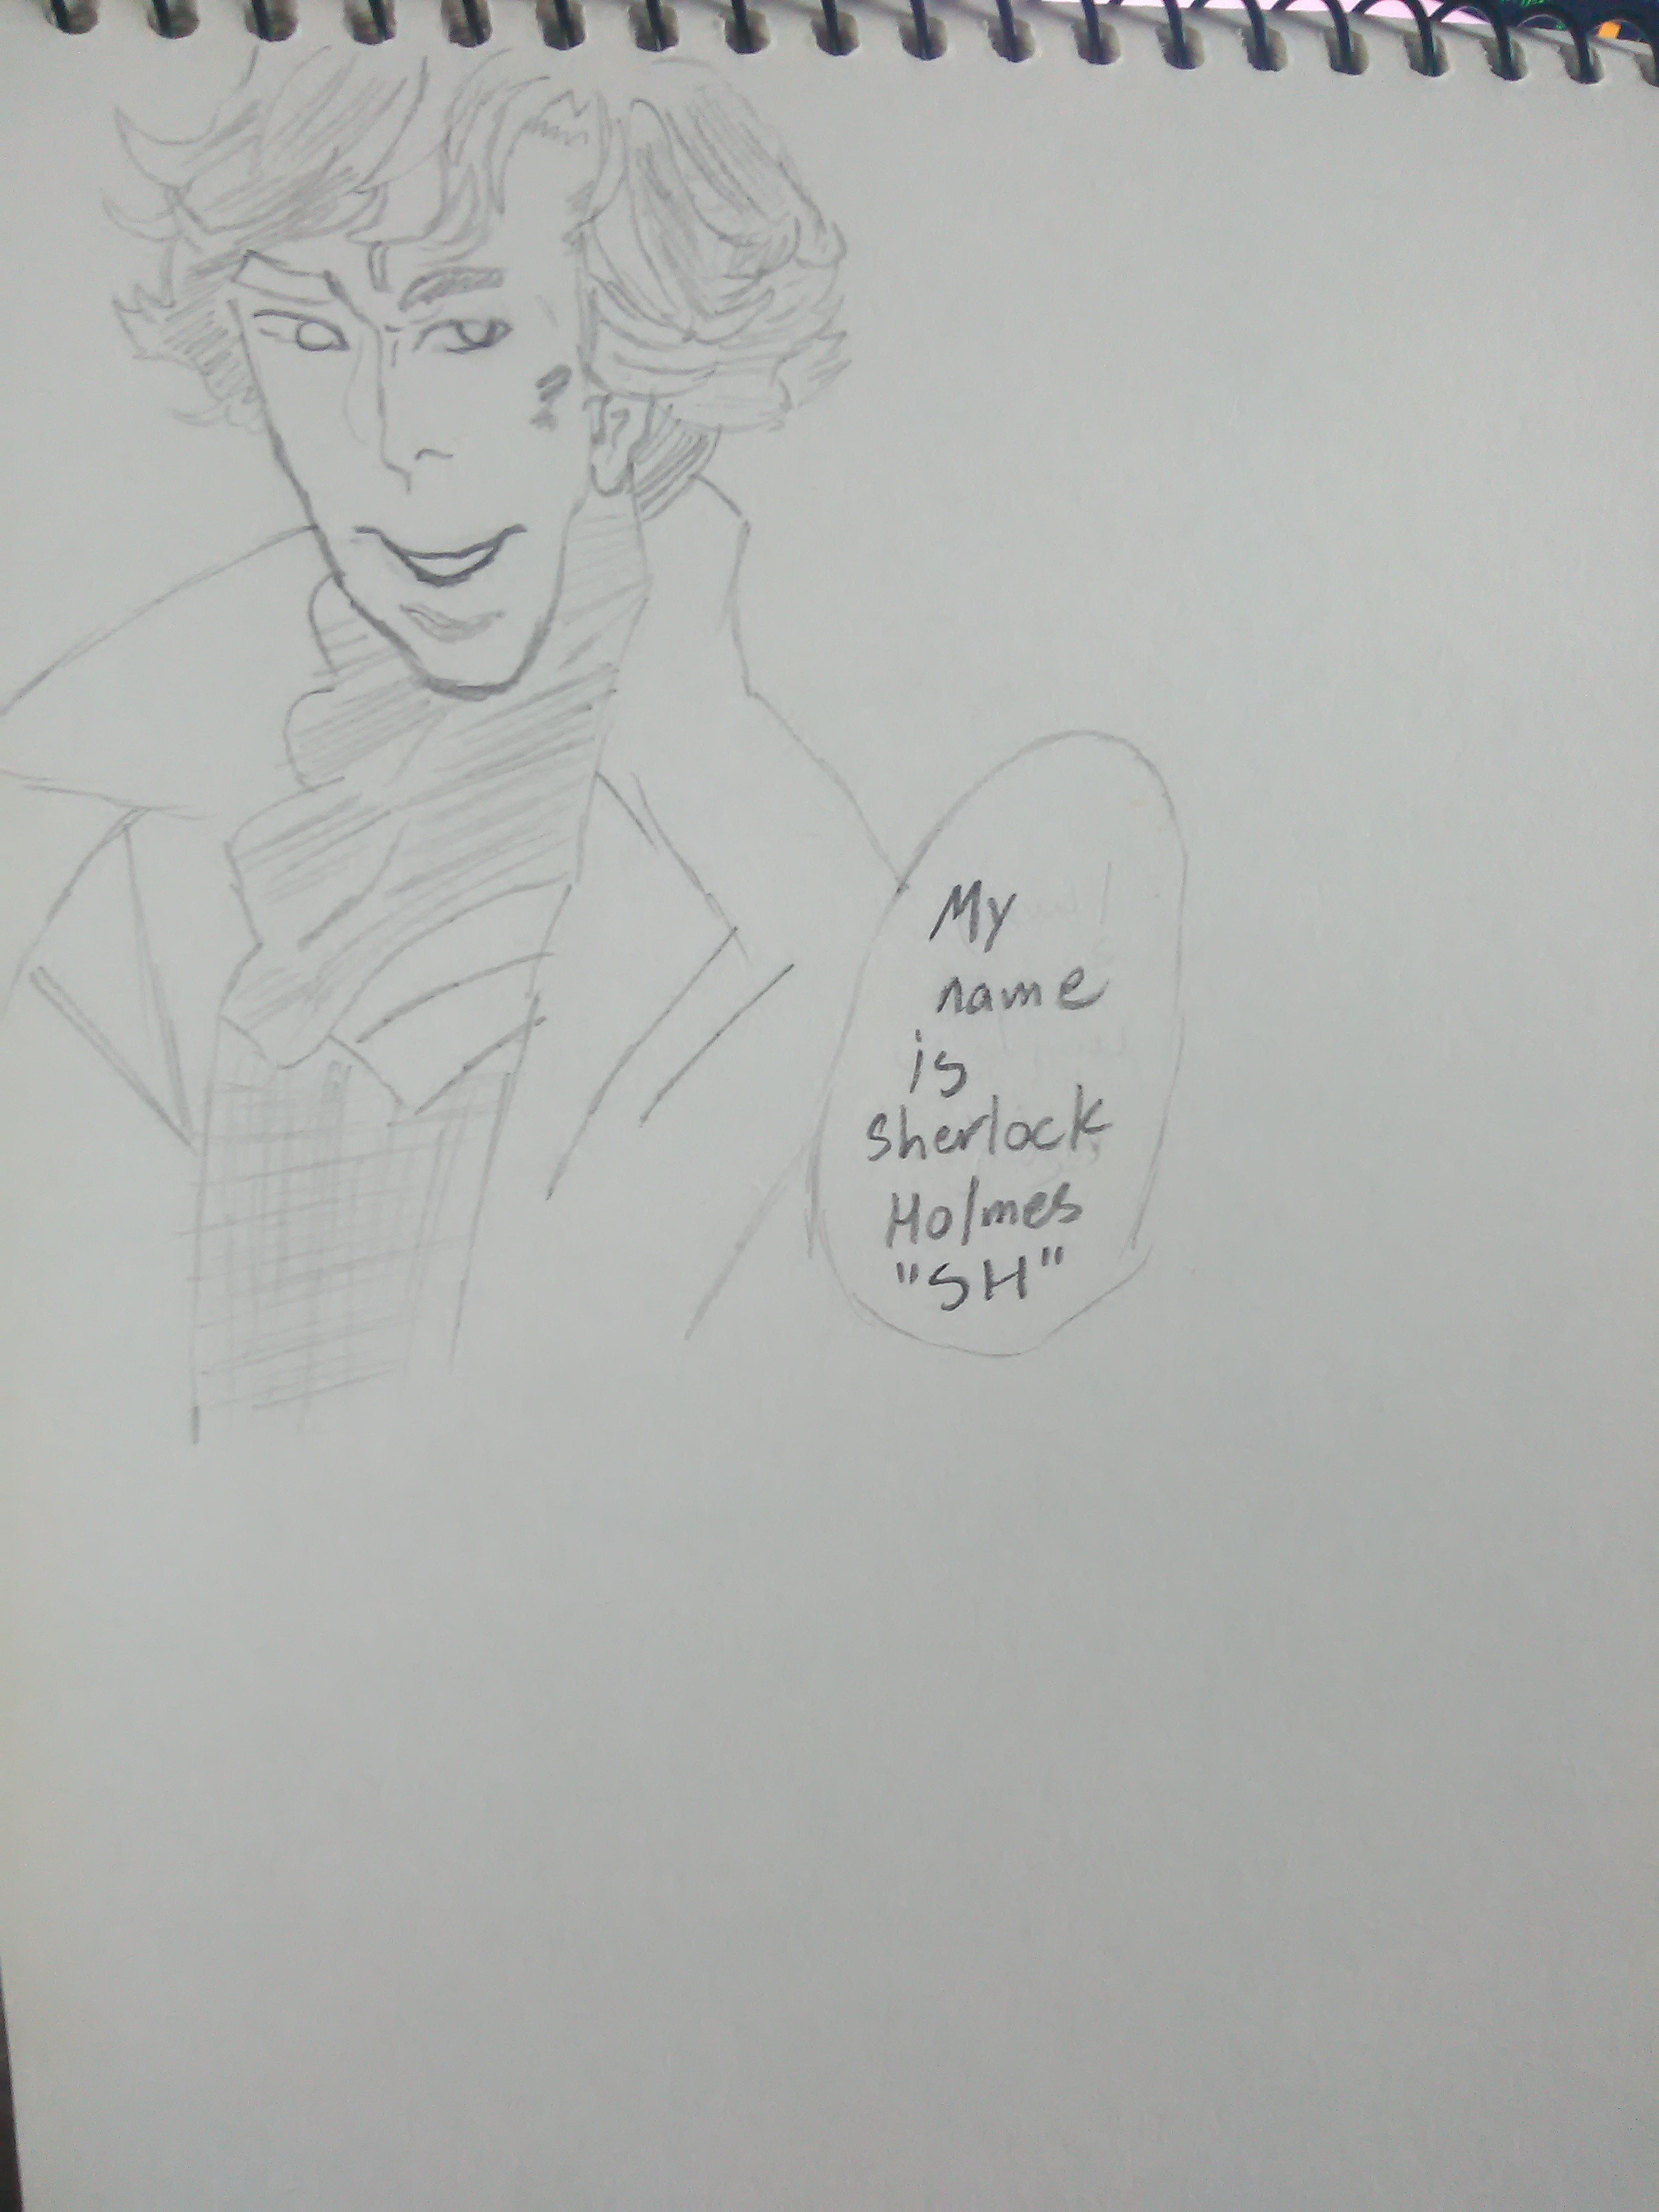 My
name
is
sherlock
Holmes
"SH"